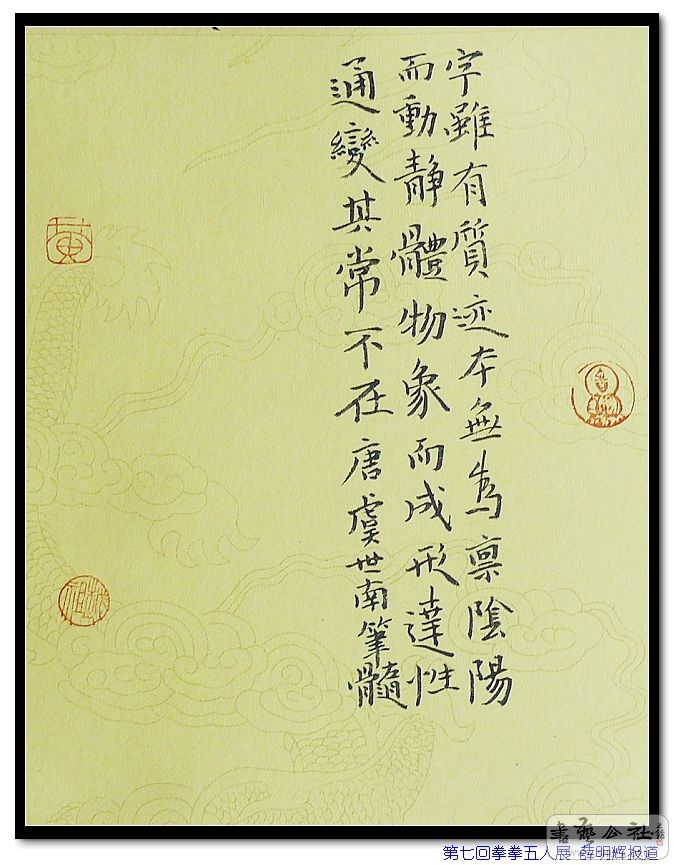 字雖有質迹本無為稟陰陽
而動靜體物象而成形達性
通變其常不在唐虞世南筆髓
黄
書藝公社
第七回拳拳五人展 薛明辉报道